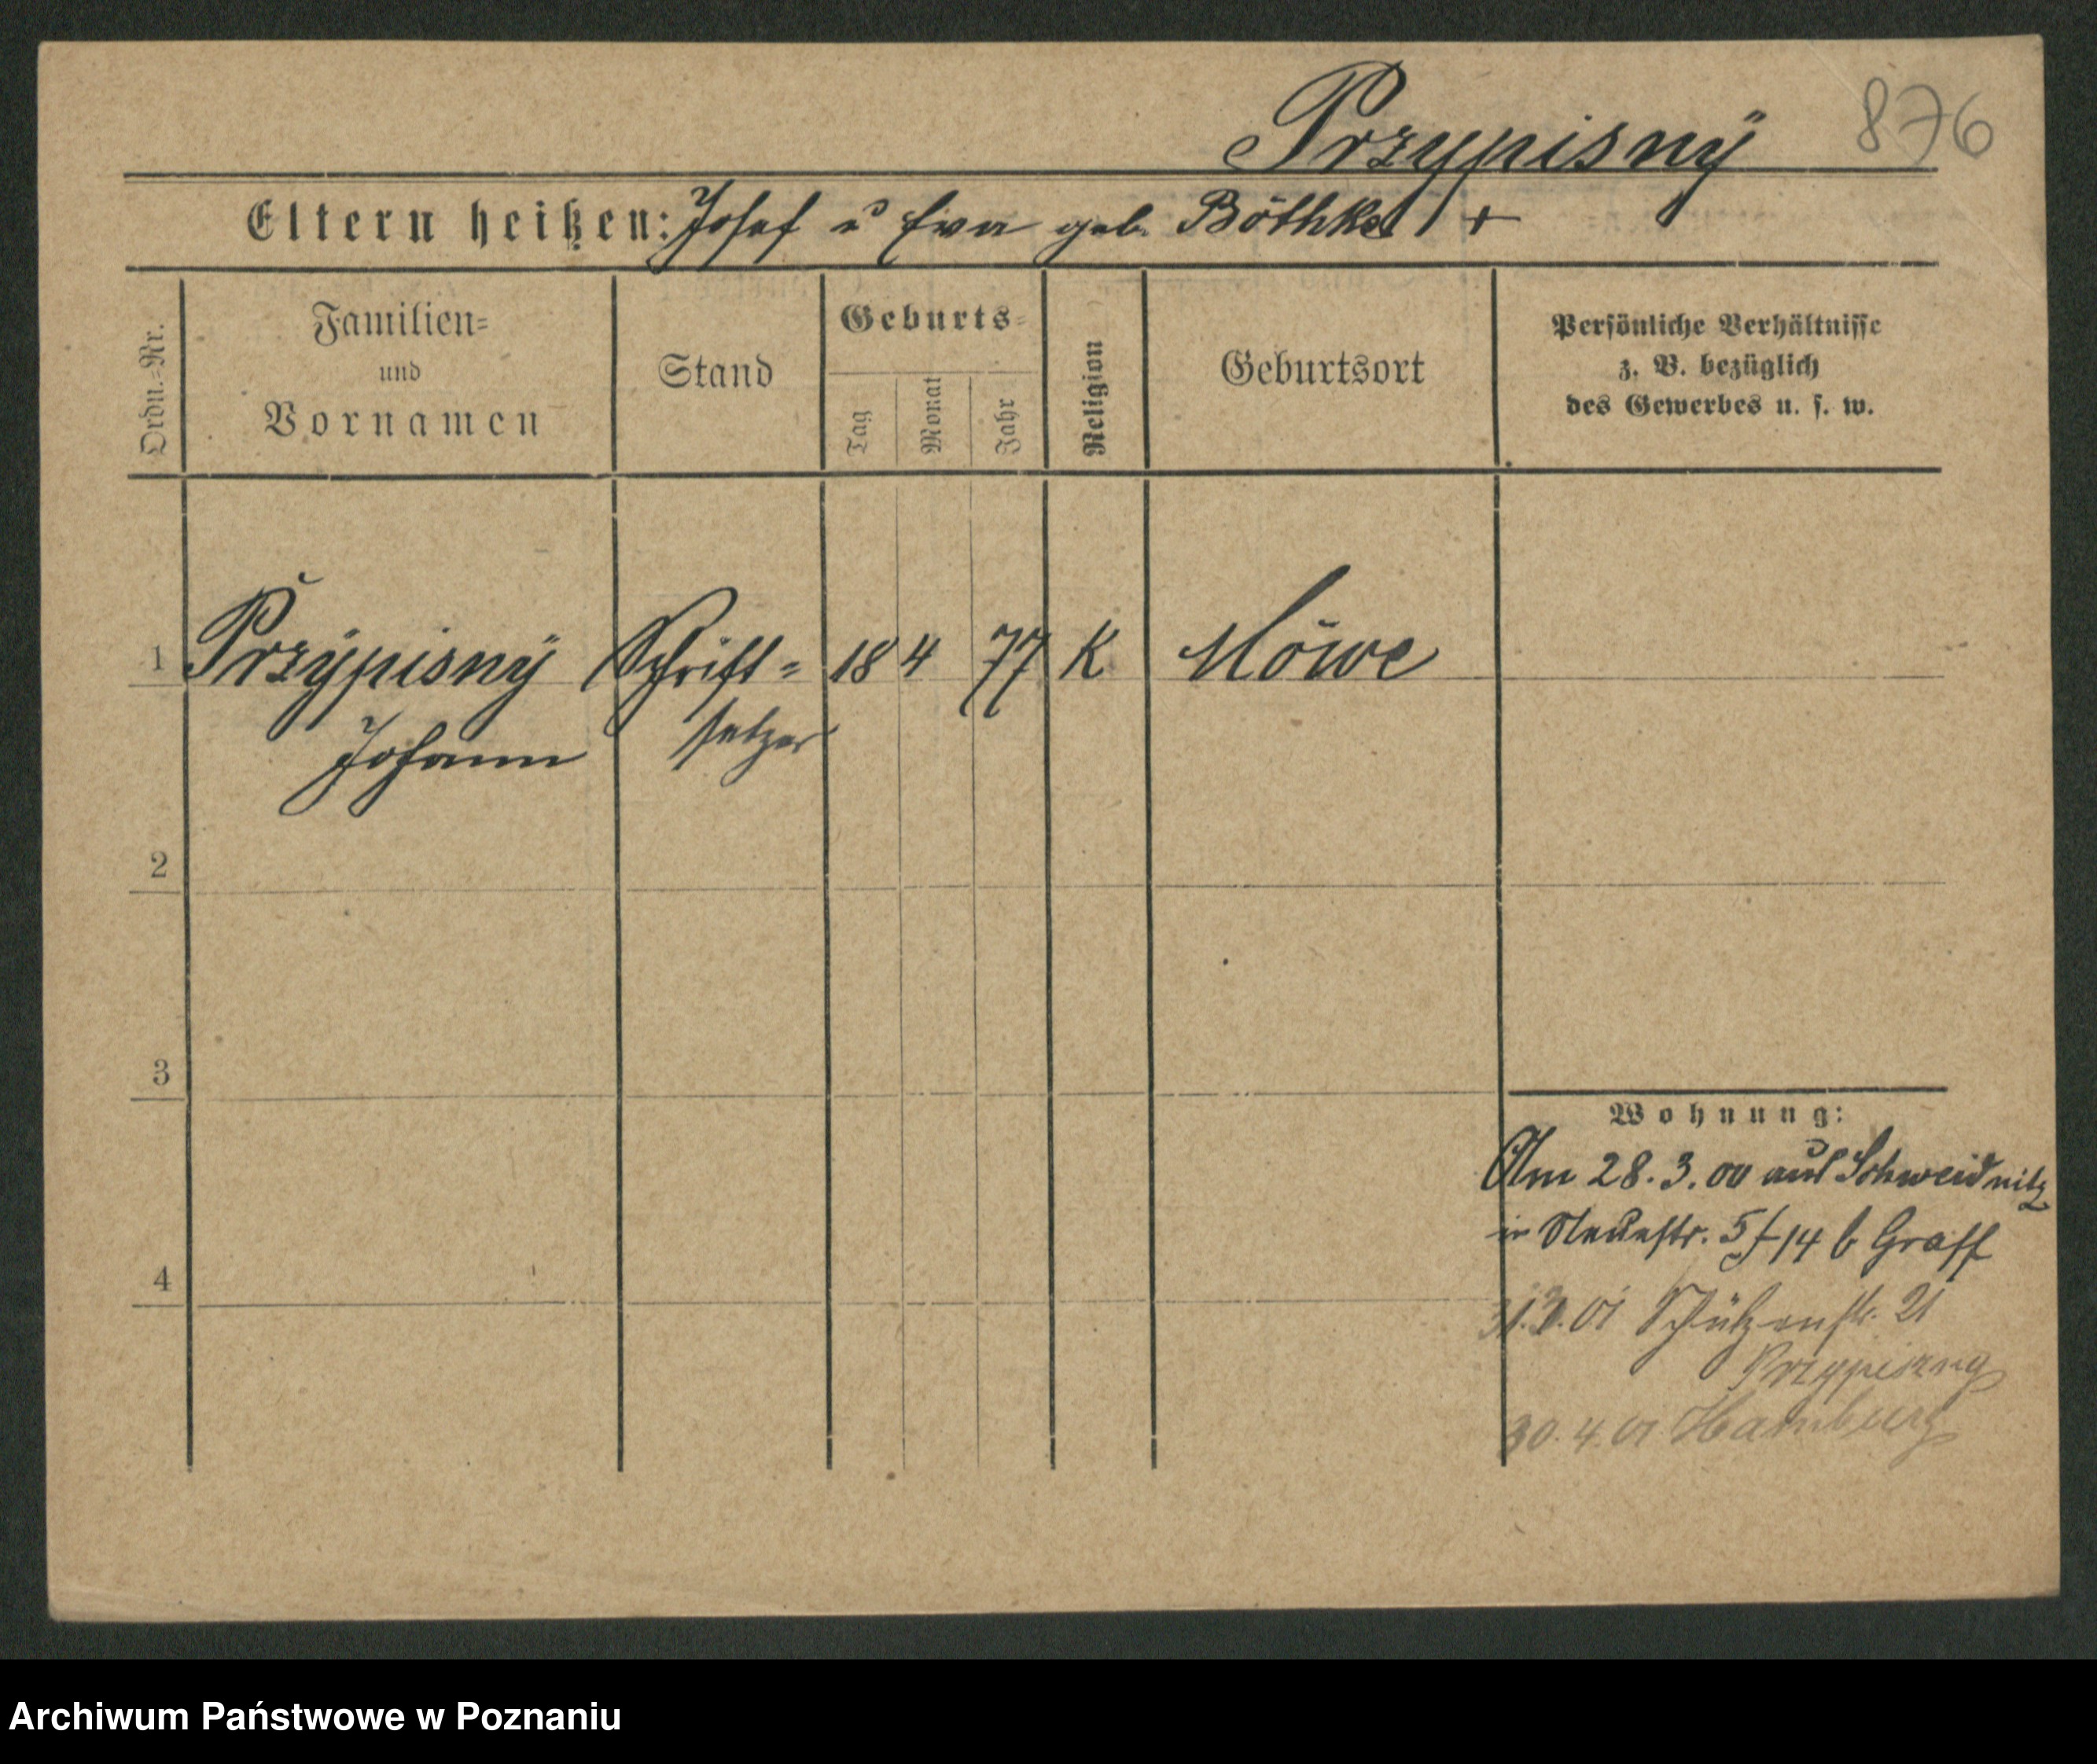 Przypisný
876
Eltern heißen: Josef u Eva geb. Böthke +
Ordn.-Nr.
Familien-
und
Vornamen
Stand
Geburts-
Tag
Monat
Jahr
Religion
Geburtsort
Persönliche Verhältnisse
z. B. bezüglich
des Gewerbes u. s. w.
1 Przýpisný Schrift= 18 4 77 K Möwe
Johann setzer
2
3
Wohnung:
Am 28.3.00 aus Schweidnitz
in Neuestr. 5/14 b Graff
4
01 Schützenstr. 21
Przypisny
30.4.01 Hamburg
Archiwum Państwowe w Poznaniu